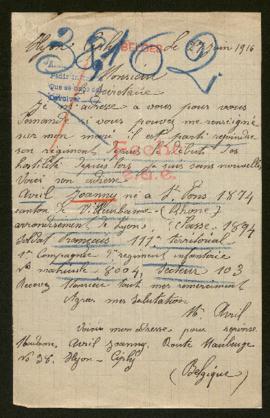 Hyon Ciply le 27 juin 1916
38162
Monsieur
Secrétaire
Je m'adresse à vous pour vous
demander si vous pouvez me renseigner
sur mon mari il est parti rejoindre
son régiment début des
hostilité depuis lors je suis sans nouvelles
Voici son adresse
Avril Joanny né à St Fons 1874
canton de (Rhone)
arrondissement de Lyon, Classe 1894
Soldat français 111e territorial
1re Compagnie régiment infanterie
No matricule 8004, Secteur 103
Recevez Monsieur tout mes remerciement
mes salutation
Avril
Voici mon adresse pour reponse
Madame Avril Joanny, Route Maubeuge
No 38. Hyon-Ciply
(Belgique)